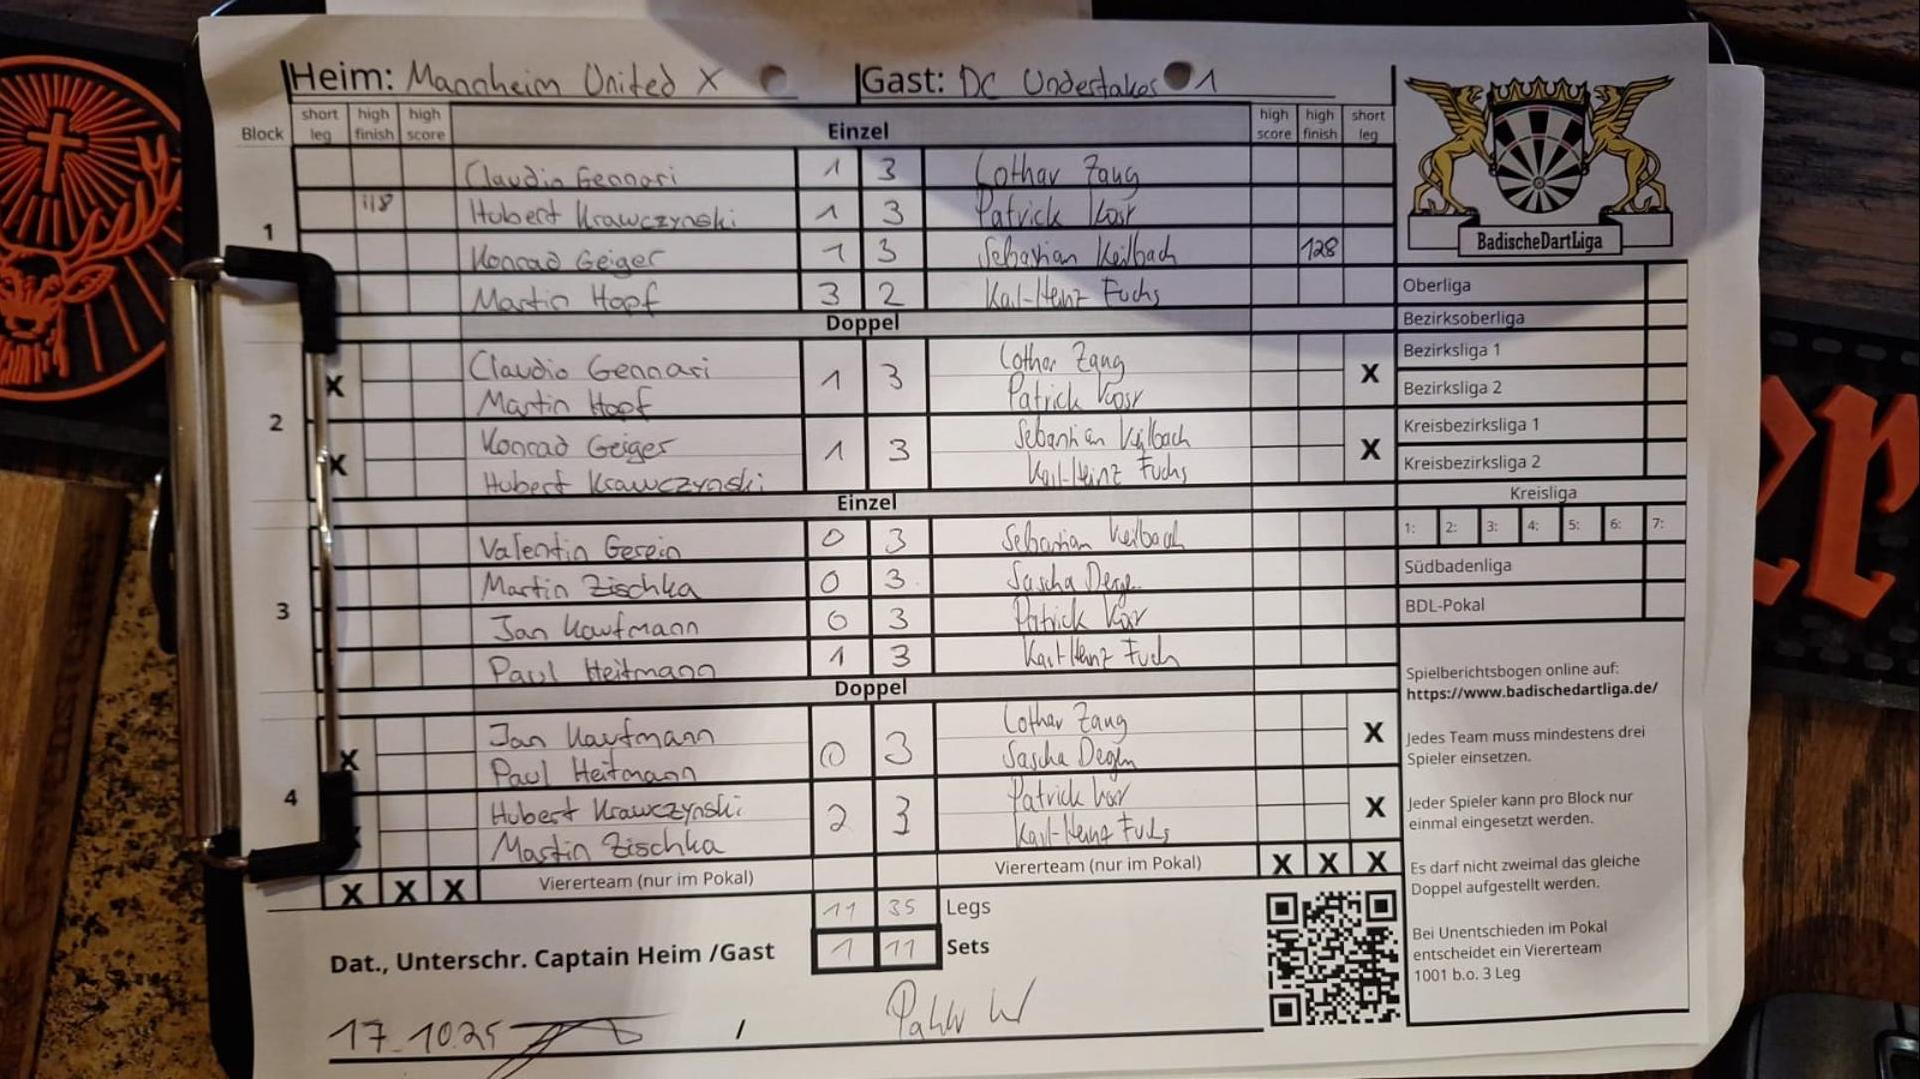 Heim: Mannheim United X Gast: DC Undertakes 1
Block short leg high finish high score Einzel high score high finish short leg
1
Claudio Gennari 1 3 Lothar Zang
118 Hubert Krawczynski 1 3 Patrick
Konrad Geiger 1 3 Sebastian Keilbach 128
Martin Hopf 3 2 Karl-Heinz Fuchs
Doppel
2
X Claudio Gennari 1 3 Lothar Zang X
Martin Hopf Patrick
X Konrad Geiger 1 3 Sebastian Keilbach X
Hubert Krawczynski Karl-Heinz Fuchs
Einzel
3
Valentin Gerein 0 3 Sebastian Keilbach
Martin Zischka 0 3 Sascha
Jan Kaufmann 0 3 Patrick
Paul Heitmann 1 3 Karl-Heinz Fuchs
Doppel
4
X Jan Kaufmann 0 3 Lothar Zang X
Paul Heitmann Sascha Degen
Hubert Krawczynski 2 3 Patrick X
Martin Zischka Karl-Heinz Fuchs
X X X Vierteam (nur im Pokal) Viererteam (nur im Pokal) X X X
11 35 Legs
1 11 Sets
Dat., Unterschr. Captain Heim /Gast
17.10.25 /
BadischeDartLiga
Oberliga
Bezirksoberliga
Bezirksliga 1
Bezirksliga 2
Kreisbezirksliga 1
Kreisbezirksliga 2
Kreisliga
1: 2: 3: 4: 5: 6: 7:
Südbadenliga
BDL-Pokal
Spielberichtsbogen online auf:
https://www.badischedartliga.de/
Jedes Team muss mindestens drei
Spieler einsetzen.
Jeder Spieler kann pro Block nur
einmal eingesetzt werden.
Es darf nicht zweimal das gleiche
Doppel aufgestellt werden.
Bei Unentschieden im Pokal
entscheidet ein Viererteam
1001 b.o. 3 Leg